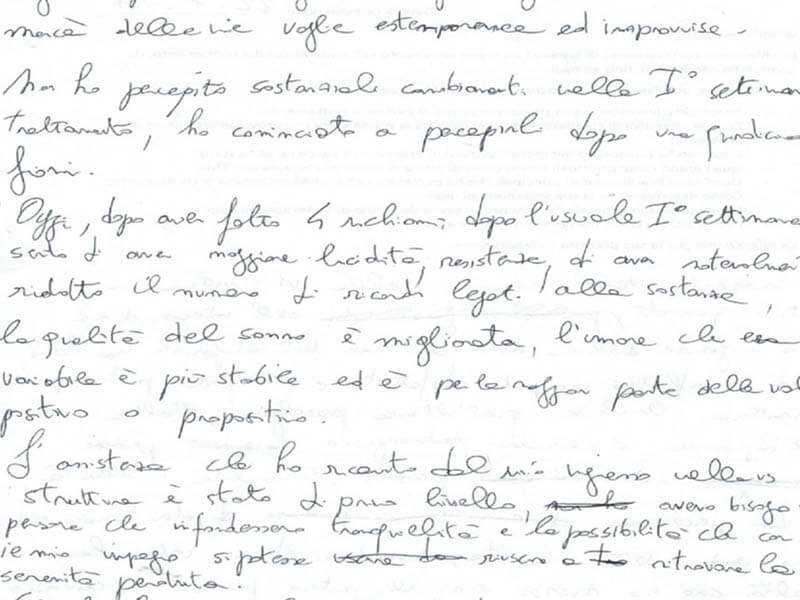 mercè delle mie voglie estemporanee ed improvvise.
Non ho percepito sostanziali cambiamenti nella I° settiman
trattamento, ho cominciato a percepirli dopo una quindicin
giorni.
Oggi, dopo aver fatto 4 richiami dopo l'usuale I° settimana
sento di aver maggiore lucidità, resistenza, di aver notevolmen
ridotto il numero di ricordi legati alla sostanza,
la qualità del sonno è migliorata, l'umore che era
variabile è più stabile ed è per la maggior parte delle vol
positivo o propositivo.
L'assistenza che ho ricevuto dal mio ingresso nella vs
struttura è stata di primo livello, non ho avevo bisogno
persone che infondessero tranquillità e la possibilità che con
il mio impegno si potesse riuscire a ritrovare la
serenità perduta.